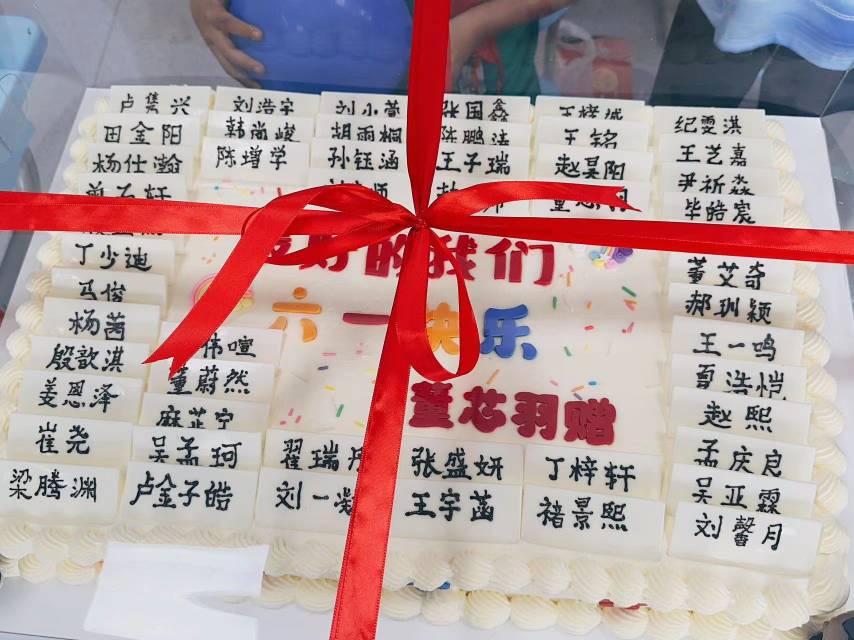 卢集兴
刘浩宇
张国鑫
纪雯淇
田金阳
韩尚峻
胡雨桐
王铭
王艺嘉
杨仕瀚
陈增学
孙钰涵
王子瑞
赵昊阳
尹祈淼
毕皓宸
丁少迪
最好的我们
董艾奇
马俊
郝玔颖
杨茜
六一快乐
伟喧
王一鸣
殷歆淇
董蔚然
夏浩恺
姜恩泽
董芯羽赠
麻芷宁
赵熙
崔尧
吴孟珂
翟瑞丹
张盛妍
丁梓轩
孟庆良
梁腾渊
卢金子皓
刘一
王宇菡
褚景熙
吴亚霖
刘馨月